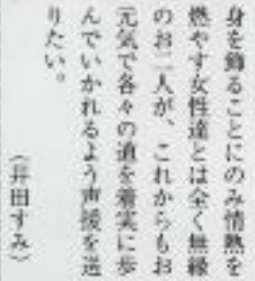 身を飾ることにのみ情熱を
燃やす女性達とは全く無縁
のお二人が、これからもお
元気で各々の道を着実に歩
んでいかれるよう声援を送
りたい。
（井田すみ）